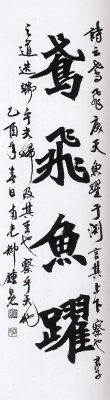 鸢飛魚躍
詩云鸢飛戾天魚躍于淵言其上下察也君子
之道造端乎夫婦及其至也察乎天地
乙酉年春日